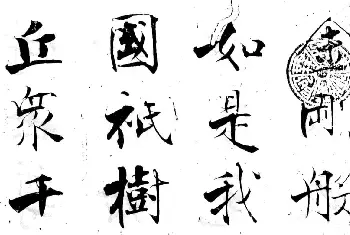 金剛般
如是我
國祇樹
丘衆千